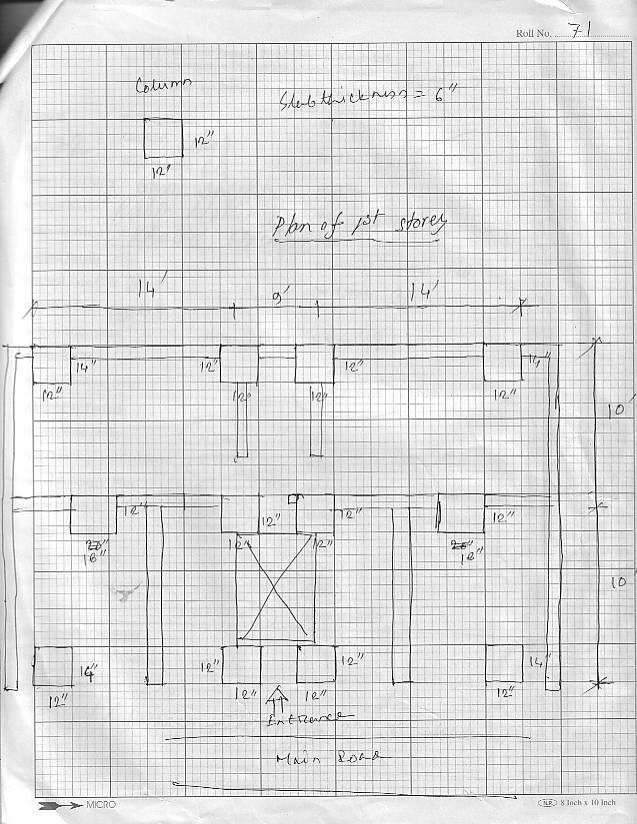 Roll No. 71
Column
Slab thickness = 6"
12"
12"
Plan of 1st storey
14'
9'
14'
14"
12"
12"
14"
12"
12"
12"
12"
10'
12"
12"
12"
12"
12"
12"
18"
18"
10'
14"
12"
12"
14"
12"
12"
12"
12"
Entrance
Main Road
MICRO
N.P. 8 Inch x 10 Inch